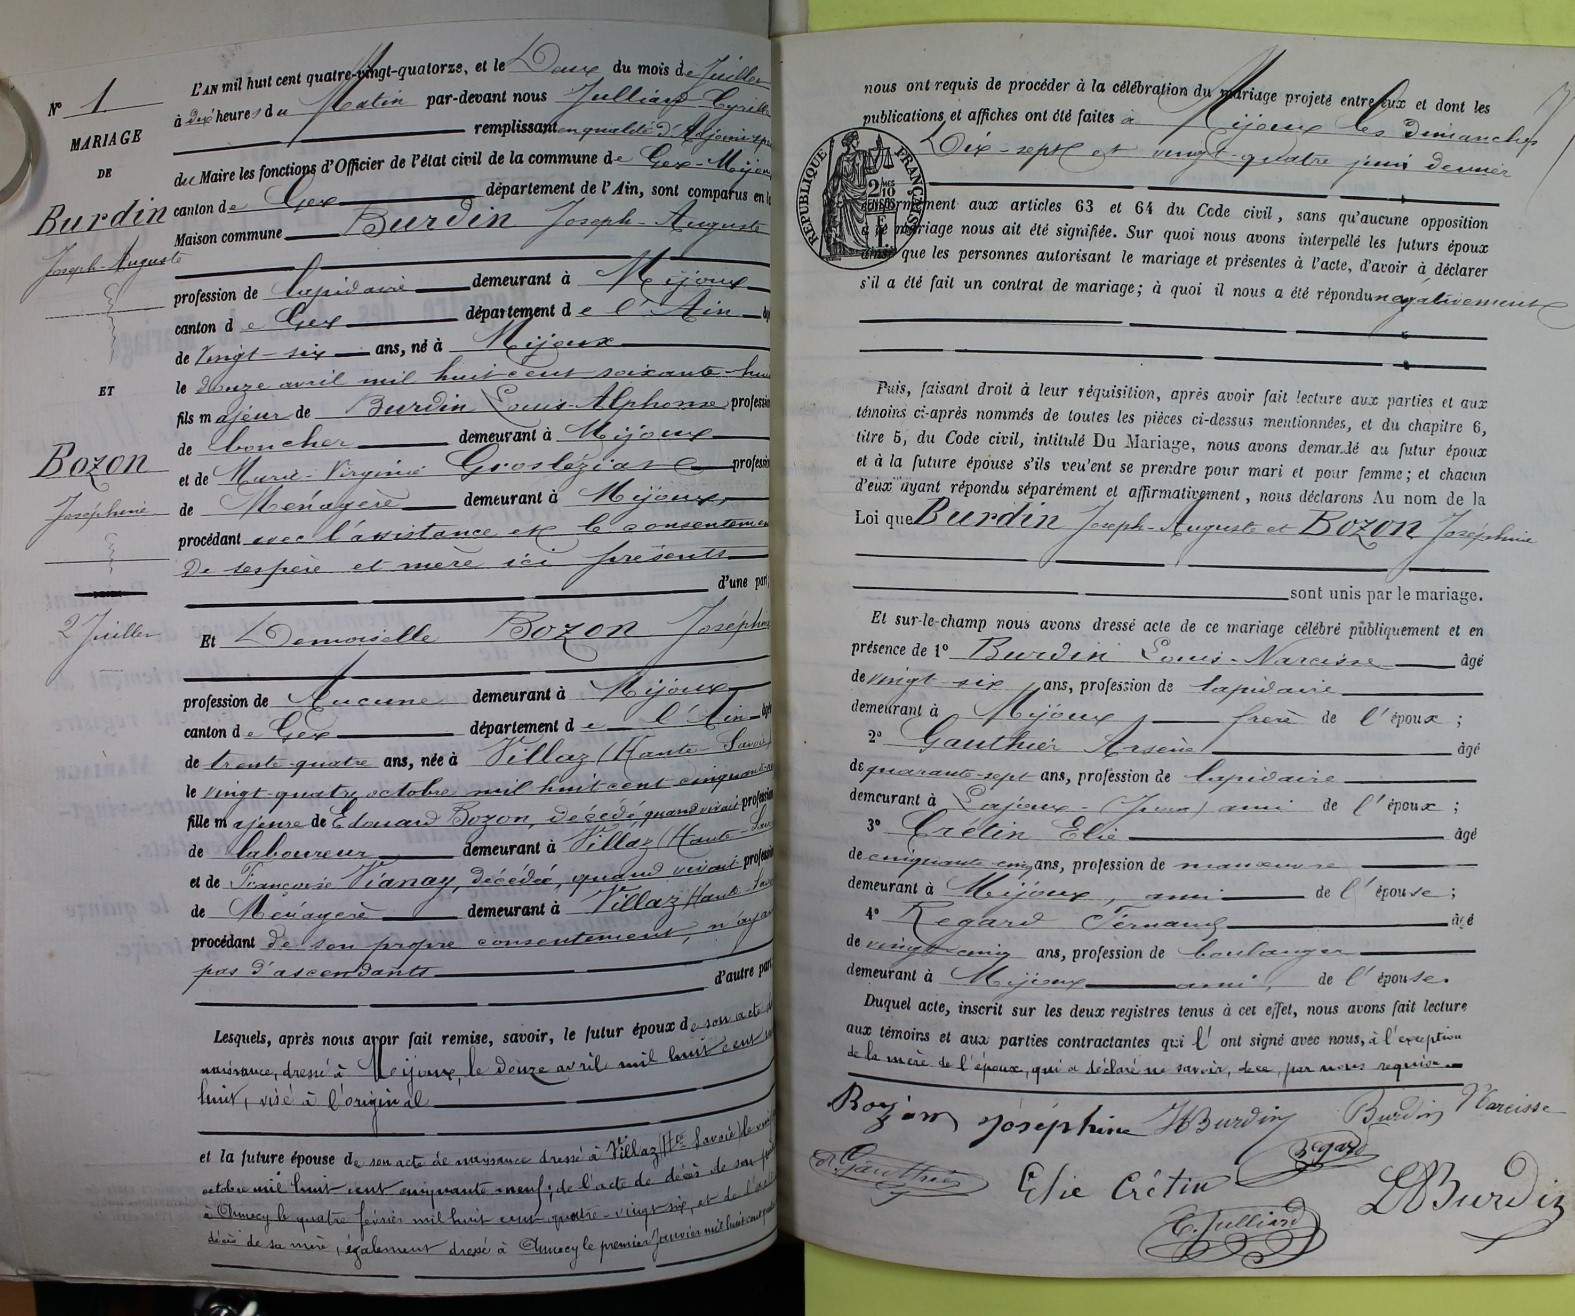 N° 1
MARIAGE
DE
Burdin
Joseph-Auguste
ET
Bozon
Joséphine
2 Juillet
L'AN mil huit cent quatre-vingt-quatorze, et le Deux du mois de Juillet
à dix heures du Matin par-devant nous Julliard Cyrille
remplissant en qualité d'Adjoint spécial
du Maire les fonctions d'Officier de l'état civil de la commune de Gex-Mijoux
canton de Gex département de l'Ain, sont comparus en la
Maison commune Burdin Joseph-Auguste
profession de lapidaire demeurant à Mijoux
canton de Gex département de l'Ain âgé
de Vingt-six ans, né à Mijoux
le douze avril mil huit cent soixante-huit
fils majeur de Burdin Louis-Alphonse profession
de boucher demeurant à Mijoux
et de Marie-Virginie Groslézian profession
de Ménagère demeurant à Mijoux,
procédant avec l'assistance et le consentement
de ses père et mère ici présents
d'une part,
Et Demoiselle Bozon Joséphine
profession de Aucune demeurant à Mijoux
canton de Gex département de l'Ain âgée
de trente-quatre ans, née à Villaz (Haute-Savoie)
le vingt-quatre octobre mil huit cent cinquante
fille majeure de Edouard Bozon, décédé quand vivait profession
de laboureur demeurant à Villaz (Haute-Savoie
et de Françoise Vianay, décédée, quand vivait profession
de Ménagère demeurant à Villaz Haute-Savoie
procédant de son propre consentement, n'ayant
pas d'ascendants
d'autre part.
Lesquels, après nous avoir fait remise, savoir, le futur époux de son acte de
naissance, dressé à Mijoux, le douze avril mil huit cent soixante
huit, visé à l'original
et la future épouse de son acte de naissance dressé à Villaz (Hte Savoie) le vingt
octobre mil huit cent cinquante neuf; de l'acte de décès de son père
à Annecy le quatre février mil huit cent quatre-vingt six, et de l'acte
décès de sa mère, également dressé à Annecy le premier Janvier mil huit cent
nous ont requis de procéder à la célébration du mariage projeté entre eux et dont les
publications et affiches ont été faites à Mijoux les dimanches
Dix-sept et vingt-quatre juin dernier
RÉPUBLIQUE FRANÇAISE
2 /10
EN SUS
conformément aux articles 63 et 64 du Code civil, sans qu'aucune opposition
à ce mariage nous ait été signifiée. Sur quoi nous avons interpellé les futurs époux
ainsi que les personnes autorisant le mariage et présentes à l'acte, d'avoir à déclarer
s'il a été fait un contrat de mariage; à quoi il nous a été répondu négativement
Puis, faisant droit à leur réquisition, après avoir fait lecture aux parties et aux
témoins ci-après nommés de toutes les pièces ci-dessus mentionnées, et du chapitre 6,
titre 5, du Code civil, intitulé Du Mariage, nous avons demandé au futur époux
et à la future épouse s'ils veulent se prendre pour mari et pour femme; et chacun
d'eux ayant répondu séparément et affirmativement, nous déclarons Au nom de la
Loi que Burdin Joseph-Auguste et Bozon Joséphine
sont unis par le mariage.
Et sur-le-champ nous avons dressé acte de ce mariage célébré publiquement et en
présence de 1° Burdin Louis-Narcisse âgé
de vingt-six ans, profession de lapidaire
demeurant à Mijoux, frère de l'époux;
2° Gauthier Arsène âgé
de quarante-sept ans, profession de lapidaire
demeurant à Lajoux-(Jura) ami de l'époux;
3° Crétin Elie âgé
de cinquante cinq ans, profession de manœuvre
demeurant à Mijoux, ami de l'épouse;
4° Regard Fernand âgé
de vingt-cinq ans, profession de boulanger
demeurant à Mijoux ami, de l'épouse.
Duquel acte, inscrit sur les deux registres tenus à cet effet, nous avons fait lecture
aux témoins et aux parties contractantes qui l'ont signé avec nous, à l'exception
de la mère de l'époux, qui a déclaré ne savoir, de ce, par nous requise.
Bozon Joséphine JABurdin Burdin Narcisse
A. Gauthier Elie Crétin Regard LABurdin
C. Julliard